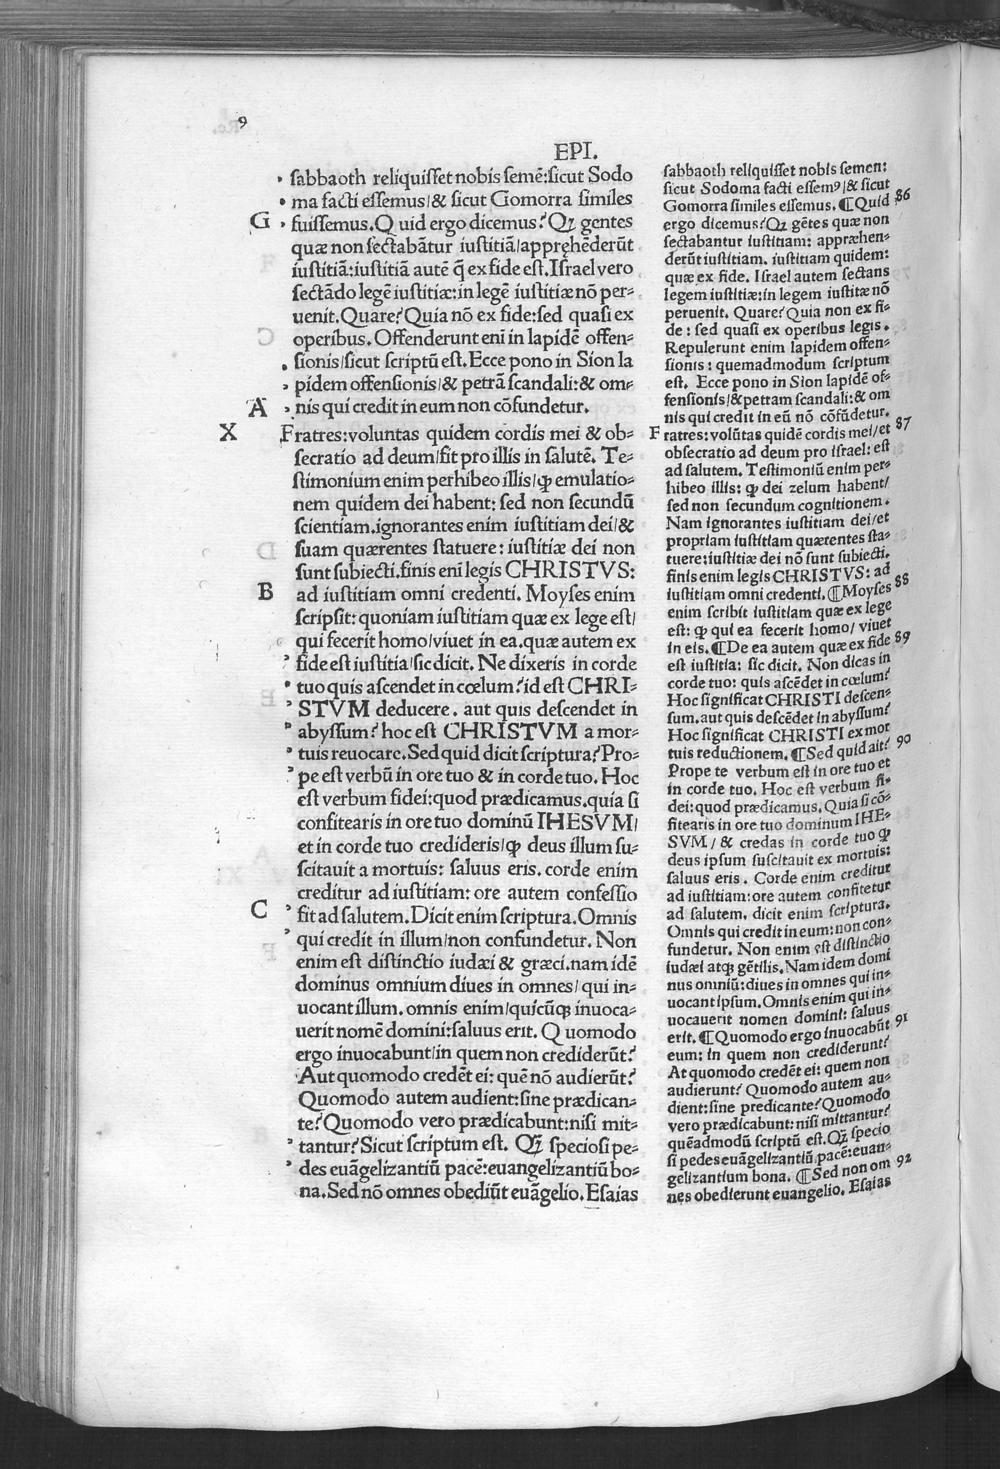 9
EPI.
sabbaoth reliquisset nobis semē:sicut Sodo
ma facti essemus/& sicut Gomorra similes
G fuissemus.Quid ergo dicemus?Qꝫ gentes
quæ non sectabātur iustitiā/appręhēderūt
iustitiā:iustitiā autē q̄ ex fide est.Israel vero
sectādo legē iustitiæ:in legē iustitiæ nō per-
uenit.Quare?Quia nō ex fide:sed quasi ex
operibus. Offenderunt eni in lapidē offen-
sionis/sicut scriptū est.Ecce pono in Sion la
pidem offensionis/& petrā scandali:& om-
A nis qui credit in eum non cōfundetur.
X Fratres:voluntas quidem cordis mei & ob-
secratio ad deum/fit pro illis in salutē. Te-
stimonium enim perhibeo illis/ꝙ emulatio-
nem quidem dei habent: sed non secundū
scientiam.ignorantes enim iustitiam dei/&
suam quærentes statuere: iustitiæ dei non
sunt subiecti.finis eni legis CHRISTVS:
B ad iustitiam omni credenti. Moyses enim
scripsit: quoniam iustitiam quæ ex lege est/
qui fecerit homo/viuet in ea.quæ autem ex
fide est iustitia/sic dicit. Ne dixeris in corde
tuo quis ascendet in cœlum?id est CHRI-
STVM deducere. aut quis descendet in
abyssum? hoc est CHRISTVM a mor-
tuis reuocare.Sed quid dicit scriptura?Pro-
pe est verbū in ore tuo & in corde tuo. Hoc
est verbum fidei:quod prædicamus.quia si
confitearis in ore tuo dominū IHESVM/
et in corde tuo credideris/ꝙ deus illum su-
scitauit a mortuis: saluus eris. corde enim
creditur ad iustitiam: ore autem confessio
C fit ad salutem.Dicit enim scriptura.Omnis
qui credit in illum/non confundetur. Non
enim est distinctio iudæi & græci.nam idē
dominus omnium diues in omnes/ qui in-
uocant illum. omnis enim/quicūqꝫ inuoca-
uerit nomē domini:saluus erit. Quomodo
ergo inuocabunt/in quem non crediderūt?
Aut quomodo credēt ei: quē nō audierūt?
Quomodo autem audient:sine prædican-
te?Quomodo vero prædicabunt:nisi mit-
tantur?Sicut scriptum est. Qꝫ speciosi pe-
des euāgelizantiū pacē:euangelizantiū bo-
na.Sed nō omnes obediūt euāgelio.Esaias
sabbaoth reliquisset nobis semen:
sicut Sodoma facti essemꝰ/& sicut
Gomorra similes essemus. ¶Quid 86
ergo dicemus?Qꝫ gētes quæ non
sectabantur iustitiam: appræhen-
derūt iustitiam. iustitiam quidem:
quæ ex fide. Israel autem sectans
legem iustitiæ:in legem iustitæ nō
peruenit. Quare?Quia non ex fi-
de: sed quasi ex operibus legis.
Repulerunt enim lapidem offen-
sionis: quemadmodum scriptum
est. Ecce pono in Sion lapidē of-
fensionis/&petram scandali:& om
nis qui credit in eū nō cōfūdetur. 87
Fratres:volūtas quidē cordis mei/et
obsecratio ad deum pro israel: est
ad salutem. Testimoniū enim per-
hibeo illis: ꝙ dei zelum habent/
sed non secundum cognitionem.
Nam ignorantes iustitiam dei/et
propriam iustitiam quærentes sta-
tuere:iustitiæ dei nō sunt subiecti.
finis enim legis CHRISTVS: ad 88
iustitiam omni credenti. ¶Moyses
enim scribit iustitiam quæ ex lege
est: ꝙ qui ea fecerit homo/ viuet
in eis.¶De ea autem quæ ex fide 89
est iustitia: sic dicit. Non dicas in
corde tuo: quis ascēdet in cœlum?
Hoc significat CHRISTI descen-
sum.aut quis descēdet in abyssum?
Hoc significat CHRISTI ex mor
tuis reductionem. ¶Sed quid ait? 90
Prope te verbum est in ore tuo et
in corde tuo. Hoc est verbum fi-
dei:quod prædicamus. Quia si cō-
fitearis in ore tuo dominum IHE-
SVM/ & credas in corde tuo ꝙ
deus ipsum suscitauit ex mortuis:
saluus eris. Corde enim creditur
ad iustitiam:ore autem confitetur
ad salutem. dicit enim scriptura.
Omnis qui credit in eum:non con-
fundetur. Non enim est distinctio
iudæi atqꝫ gētilis.Nam idem domi
nus omniū:diues in omnes qui in-
uocant ipsum.Omnis enim qui in-
uocauerit nomen domini: saluus
erit. ¶Quomodo ergo inuocabūt 91
eum: in quem non crediderunt?
At quomodo credēt ei: quem non
audierunt? Quomodo autem au-
dient:sine predicante?Quomodo
vero prædicabunt: nisi mittantur?
quēadmodū scriptū est.Qꝫ specio
si pedes euāgelizantiū pacē:euan-
gelizantium bona. ¶Sed non om 92
nes obedierunt euangelio. Esaias